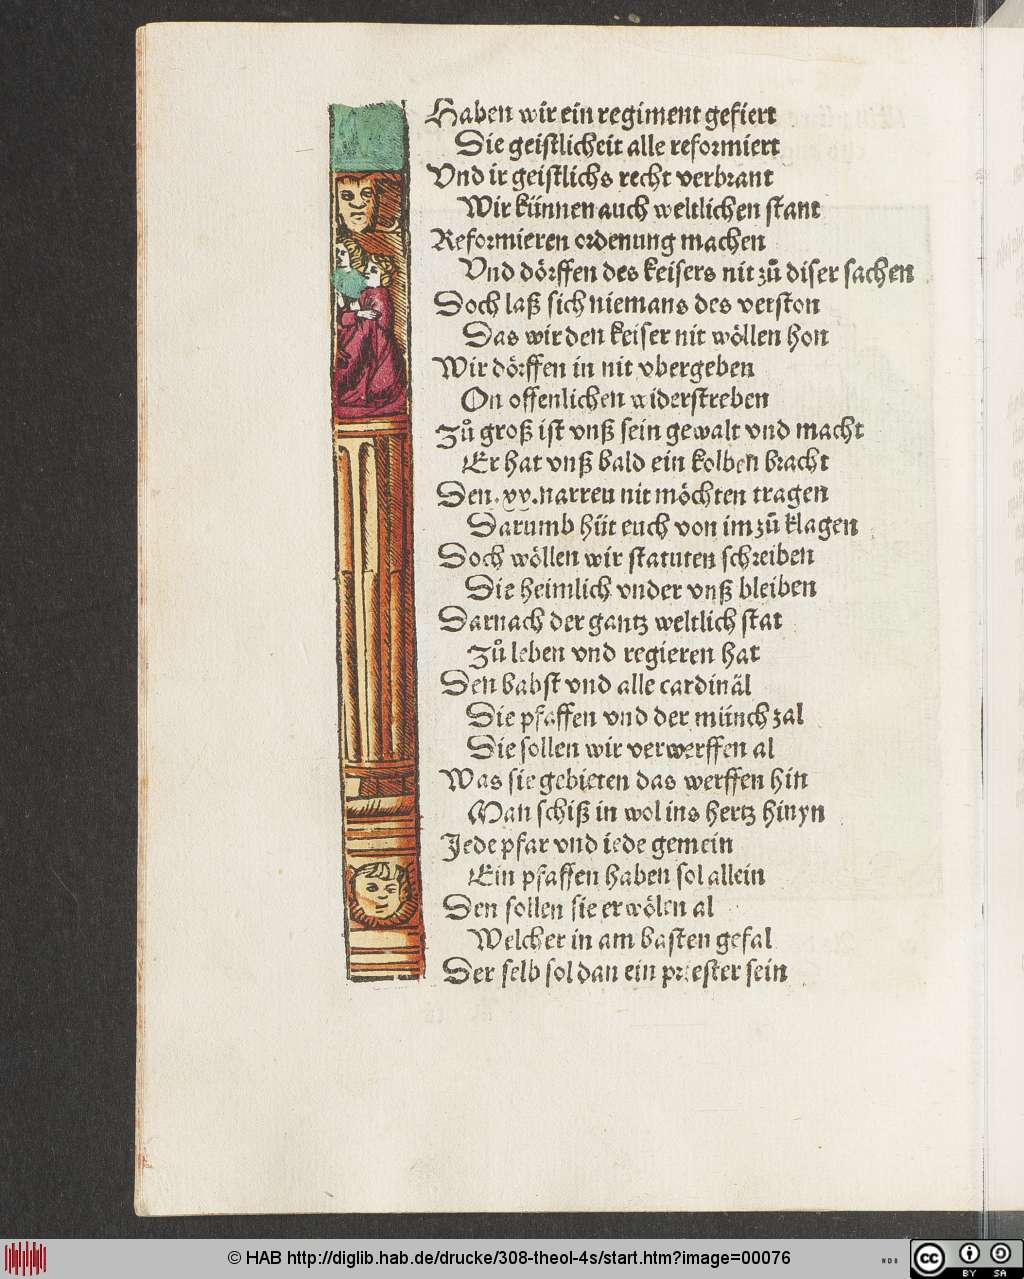 Haben wir ein regiment gefiert
Die geistlicheit alle reformiert
Vnd ir geistlichs recht verbrant
Wir künnen auch weltlichen stant
Reformieren ordenung machen
Vnd dörffen des keisers nit zů diser sachen
Doch laß sich niemans des verston
Das wir den keiser nit wöllen hon
Wir dörffen in nit vbergeben
On offenlichen widerstreben
Zů groß ist vnß sein gewalt vnd macht
Er hat vnß bald ein kolben bracht
Den .xv. narren nit möchten tragen
Darumb hüt euch von im zů klagen
Doch wöllen wir statuten schreiben
Die heimlich vnder vnß bleiben
Darnach der gantz weltlich stat
Zů leben vnd regieren hat
Den babst vnd alle cardinäl
Die pfaffen vnd der münch zal
Die sollen wir verwerffen al
Was sie gebieten das werffen hin
Man schiß in wol ins hertz hinyn
Jede pfar vnd iede gemein
Ein pfaffen haben sol allein
Den sollen sie erwölen al
Welcher in am basten gefal
Der selb sol dan ein priester sein
© HAB http://diglib.hab.de/drucke/308-theol-4s/start.htm?image=00076
WDB
cc BY SA